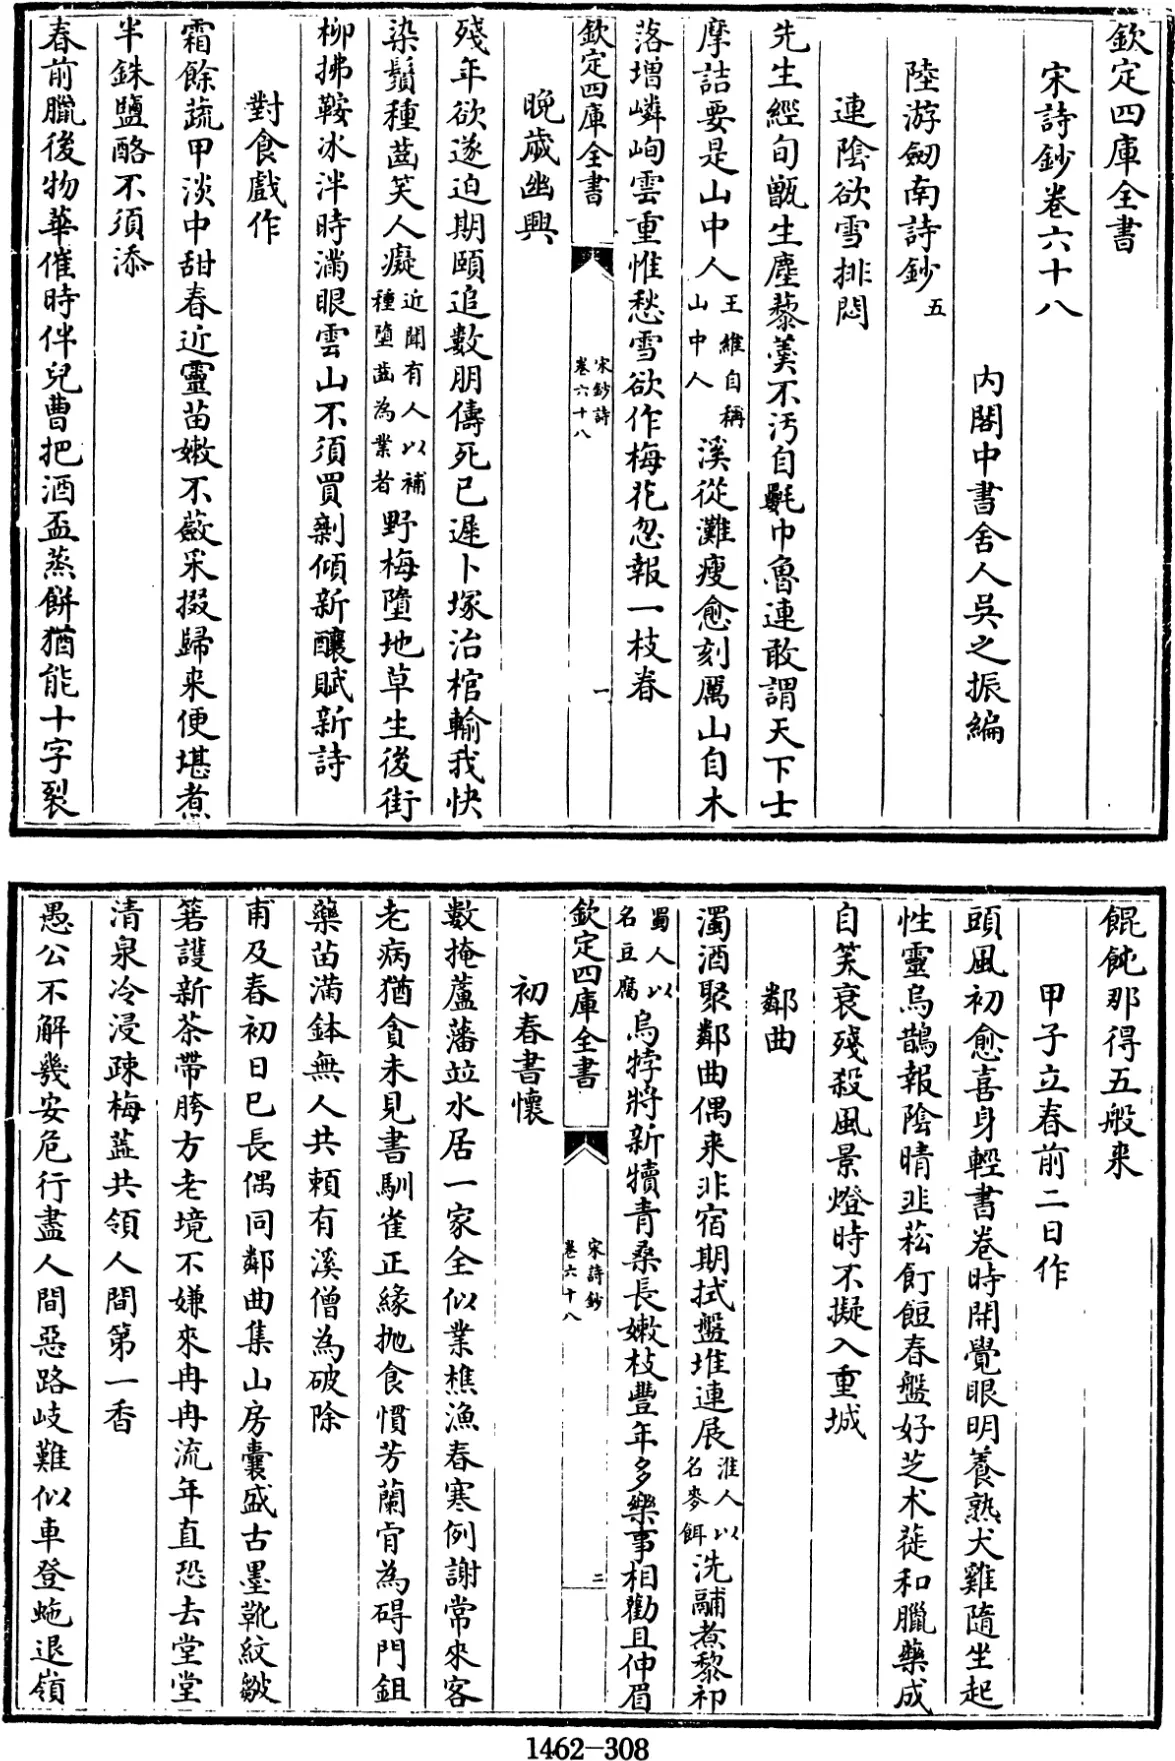 欽定四庫全書
宋詩鈔卷六十八
內閣中書舍人吳之振編
陸游劒南詩鈔五
連陰欲雪排悶
先生經旬甑生塵藜羮不污自氎巾魯連敢謂天下士
摩詰要是山中人王維自稱山中人溪從灘瘦愈刻厲山自木
落增嶙峋雲重惟愁雪欲作梅花忽報一枝春
欽定四庫全書
宋鈔詩
卷六十八
一
晚歲幽興
殘年欲遂迫期頤追數朋儔死已遲卜塚治棺輸我快
染鬚種齒笑人癡近聞有人以補種墮齒為業者野梅墮地草生後街
柳拂鞍冰泮時滿眼雲山不須買剩傾新釀賦新詩
對食戲作
霜餘蔬甲淡中甜春近靈苗嫩不蔹采掇歸来便堪煮
半銖鹽酪不須添
春前臘後物華催時伴兒曹把酒盃蒸餅猶能十字裂
餛飩那得五般来
甲子立春前二日作
頭風初愈喜身輕書卷時開覺眼明養熟犬雞隨坐起
性靈烏鵲報陰晴韭菘飣餖春盤好芝术蓰和臘藥成
自笑衰殘殺風景燈時不擬入重城
鄰曲
濁酒聚鄰曲偶来非宿期拭盤堆連展淮人以名麥餌洗鬴煮黎祁
蜀人以名豆腐烏牸將新犢青桑長嫩枝豐年多樂事相勸且伸眉
欽定四庫全書
宋詩鈔
卷六十八
二
初春書懷
數掩蘆藩竝水居一家全似業樵漁春寒例謝常來客
老病猶貪未見書馴雀正緣抛食慣芳蘭肯為碍門鉏
藥苗滿鉢無人共賴有溪僧為破除
甫及春初日已長偶同鄰曲集山房囊盛古墨靴紋皺
箬護新茶帶胯方老境不嫌來冉冉流年直恐去堂堂
清泉冷浸疎梅蘂共領人間第一香
愚公不解幾安危行盡人間惡路岐難似車登虵退嶺
1462-308